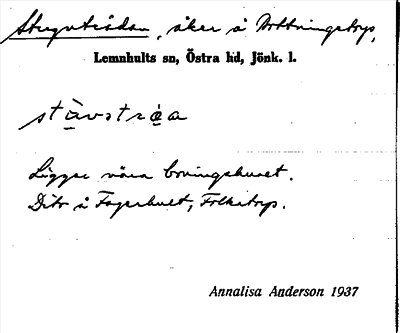 Stuguträdan, åker å Drottningstorp,
Lemnhults sn, Östra hd, Jönk. l.
Ligger nära boningshuset.
Dito å Fagerhult, Folkstorp.
Annalisa Anderson 1937